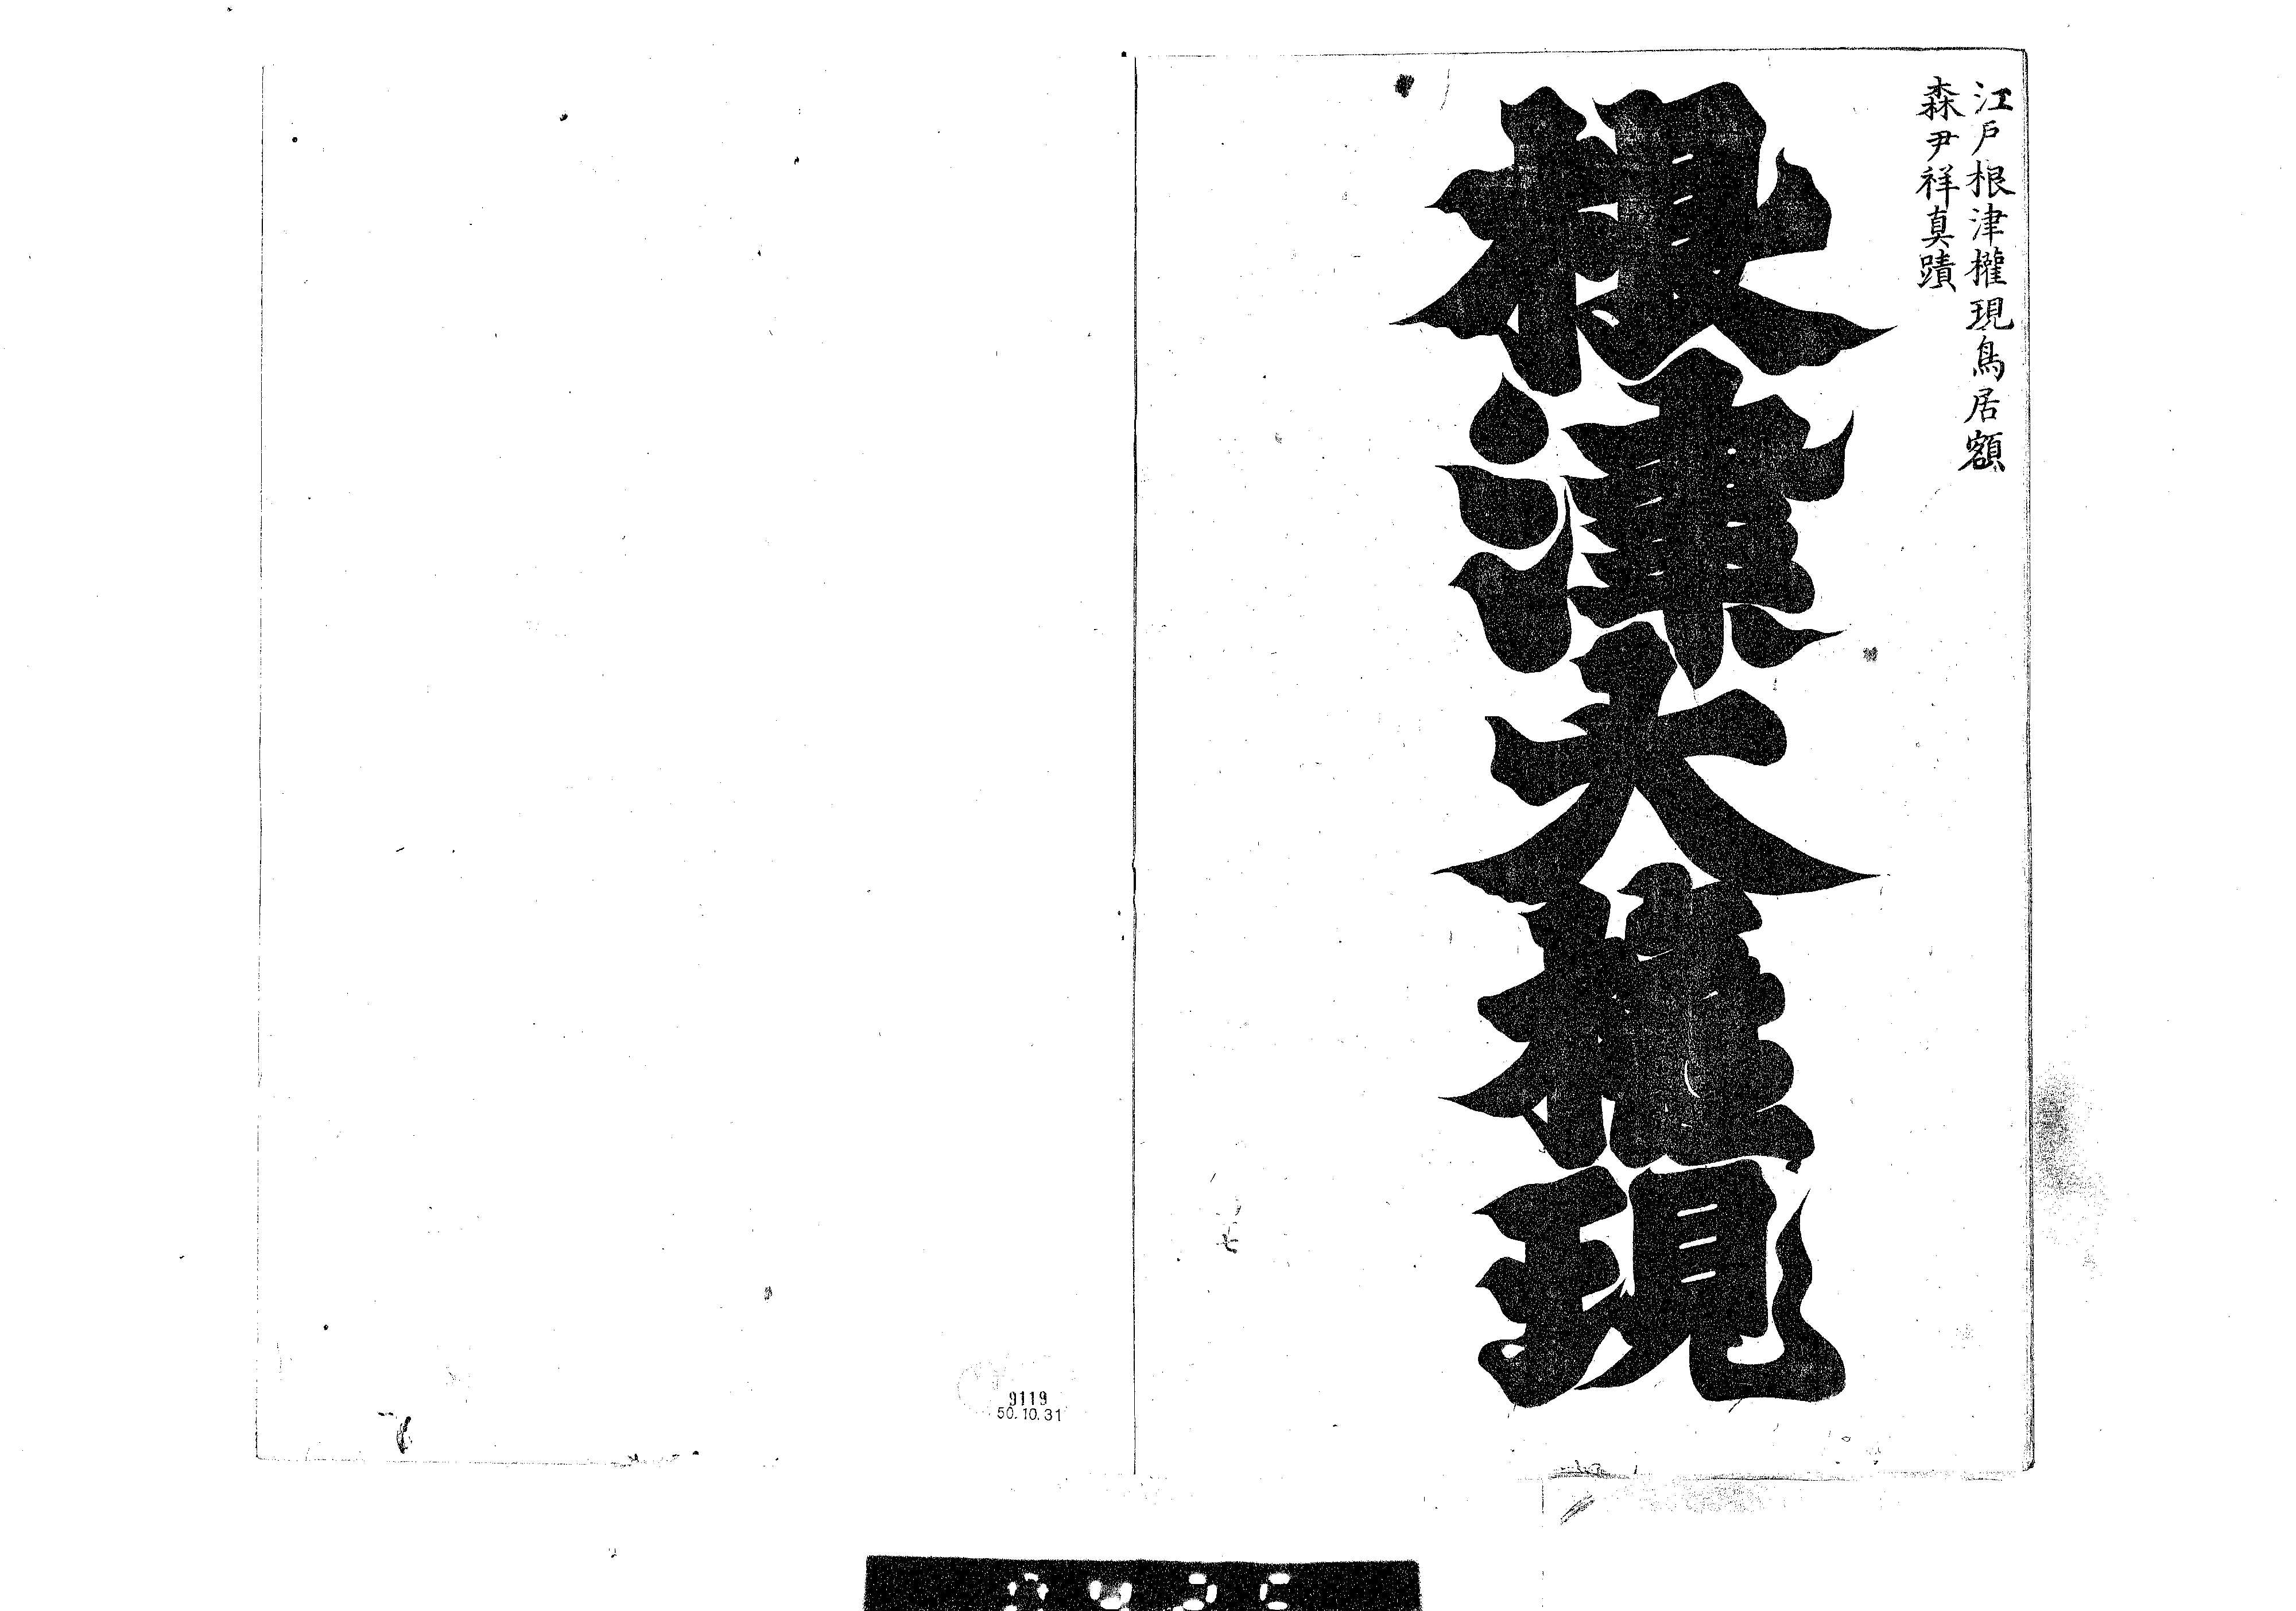 江戸根津權現鳥居額
森尹祥真蹟
根津大權現
9119
50.10.31